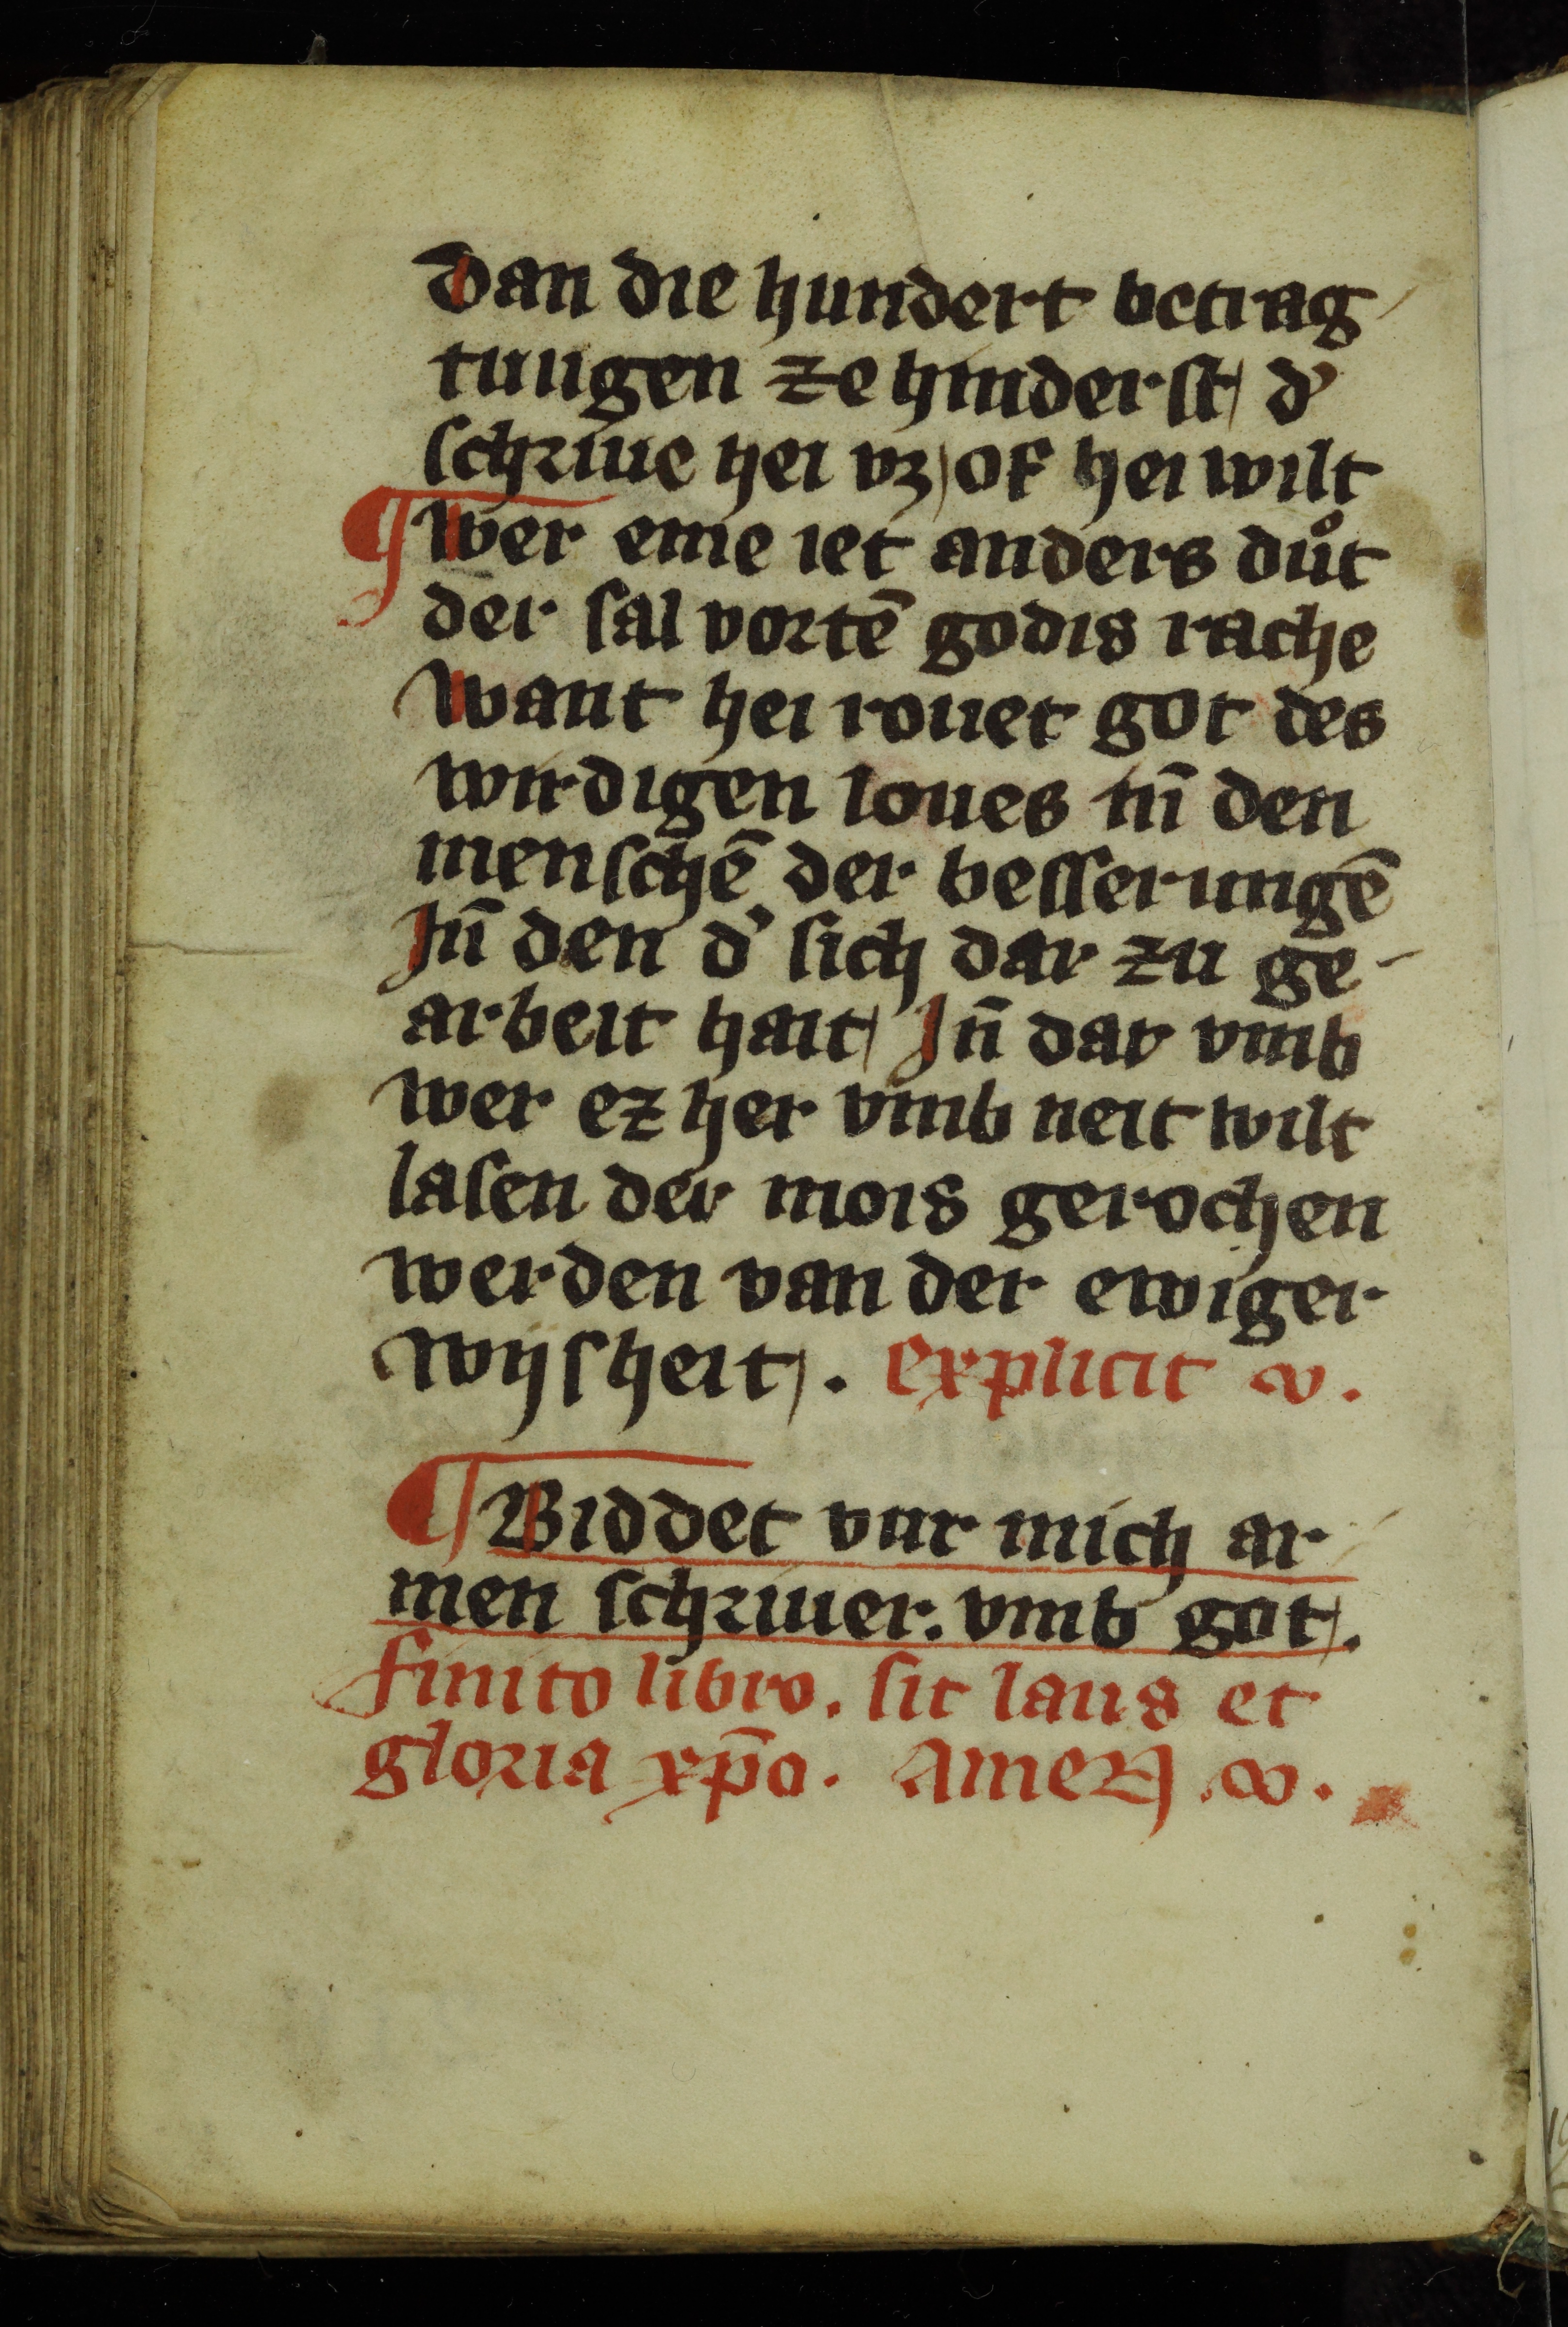 Dan die hundert betrag
tungen ze hinderst d'
schriue hei vz of hei wilt
¶ Wer eme iet anders duͦt
der sal vortē godis rache
Want hei rouet got des
wirdigen loues in̄ den
menschē der besserungē
In̄ den d' sich dar zu ge-
arbeit hait In̄ dar vmb
wer ez her vmb neit wilt
lasen der mois gerochen
werden van der ewiger
wijsheit. Explicit
¶ Biddet vur mich ar
men schriuer. vmb got.
Finito libro. sit laus et
gloria xp̄o. Amen.